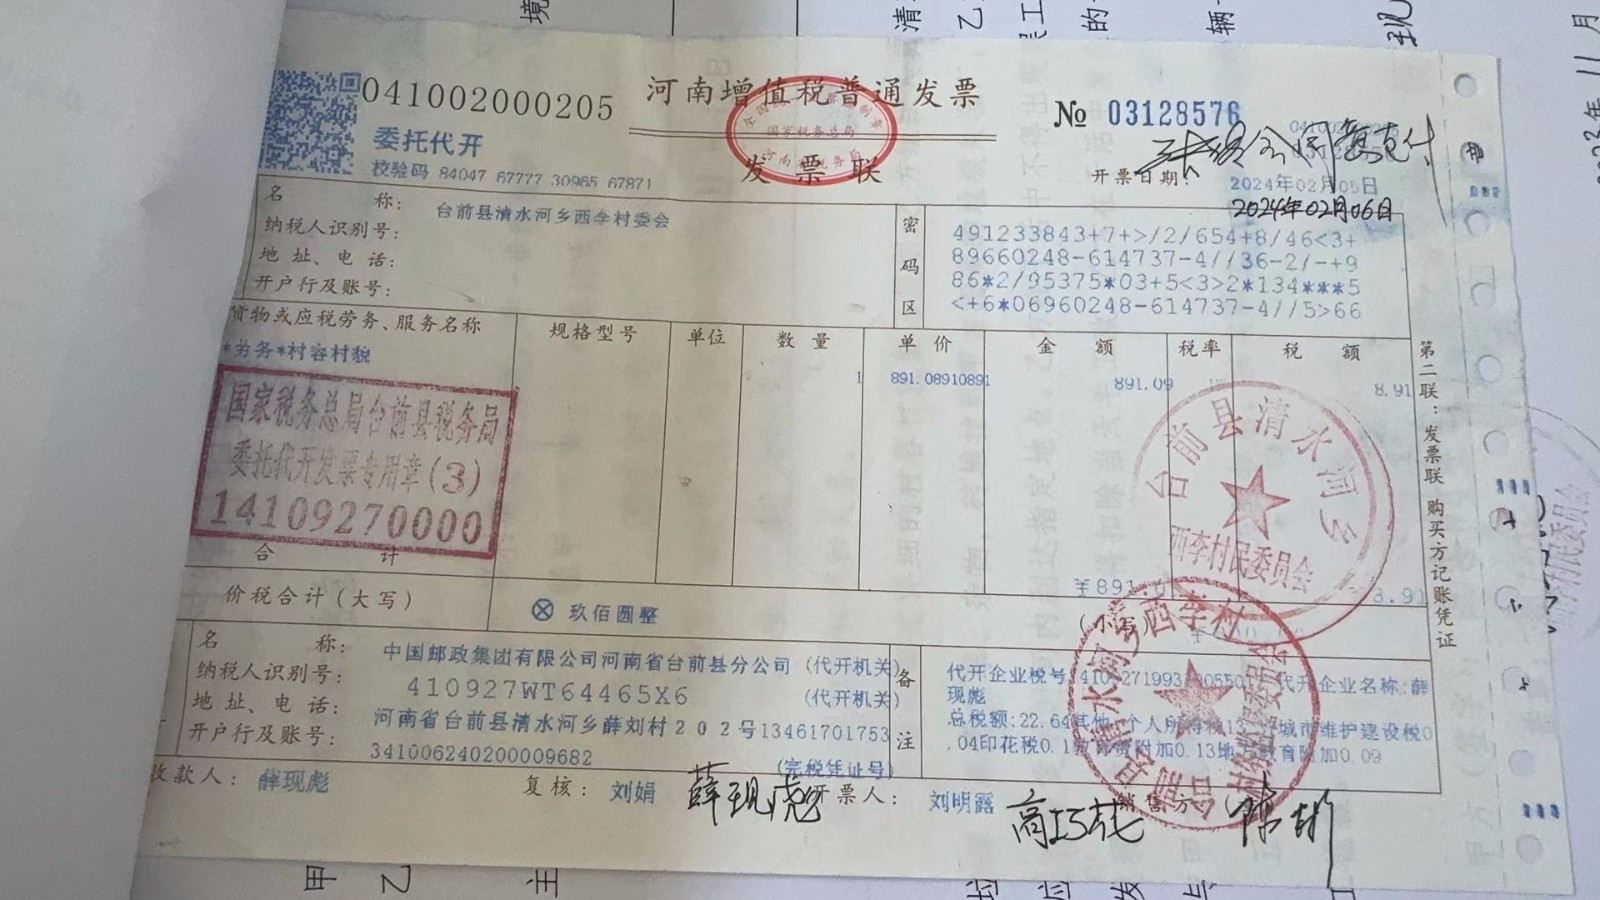 041002000205
河南增值税普通发票
№ 03128576
委托代开
校验码 84047 67777 30965 67871
发票联
开票日期:
2024年02月05日
2024年02月06日
名称: 台前县清水河乡西李村委会
纳税人识别号:
地址、电话:
开户行及账号:
密码区
491233843+7+>/2/654+8/46<3+
89660248-614737-4//36-2/-+9
86*2/95375*03+5<3>2*134***5
<+6*06960248-614737-4//5>66
货物或应税劳务、服务名称 规格型号 单位 数量 单价 金额 税率 税额
*劳务*村容村貌 1 891.08910891 891.09 8.91
国家税务总局台前县税务局
委托代开发票专用章(3)
14109270000
台前县清水河乡
西李村民委员会
合计
价税合计(大写) ⊗ 玖佰圆整 (小写)
第二联:发票联 购买方记账凭证
名称: 中国邮政集团有限公司河南省台前县分公司 (代开机关)
纳税人识别号: 410927WT64465X6 (代开机关)
地址、电话: 河南省台前县清水河乡薛刘村202号13461701753
开户行及账号: 341006240200009682 (完税凭证号)
备注
代开企业名称:薛
现彪
收款人: 薛现彪 复核: 刘娟 薛现彪 开票人: 刘明露